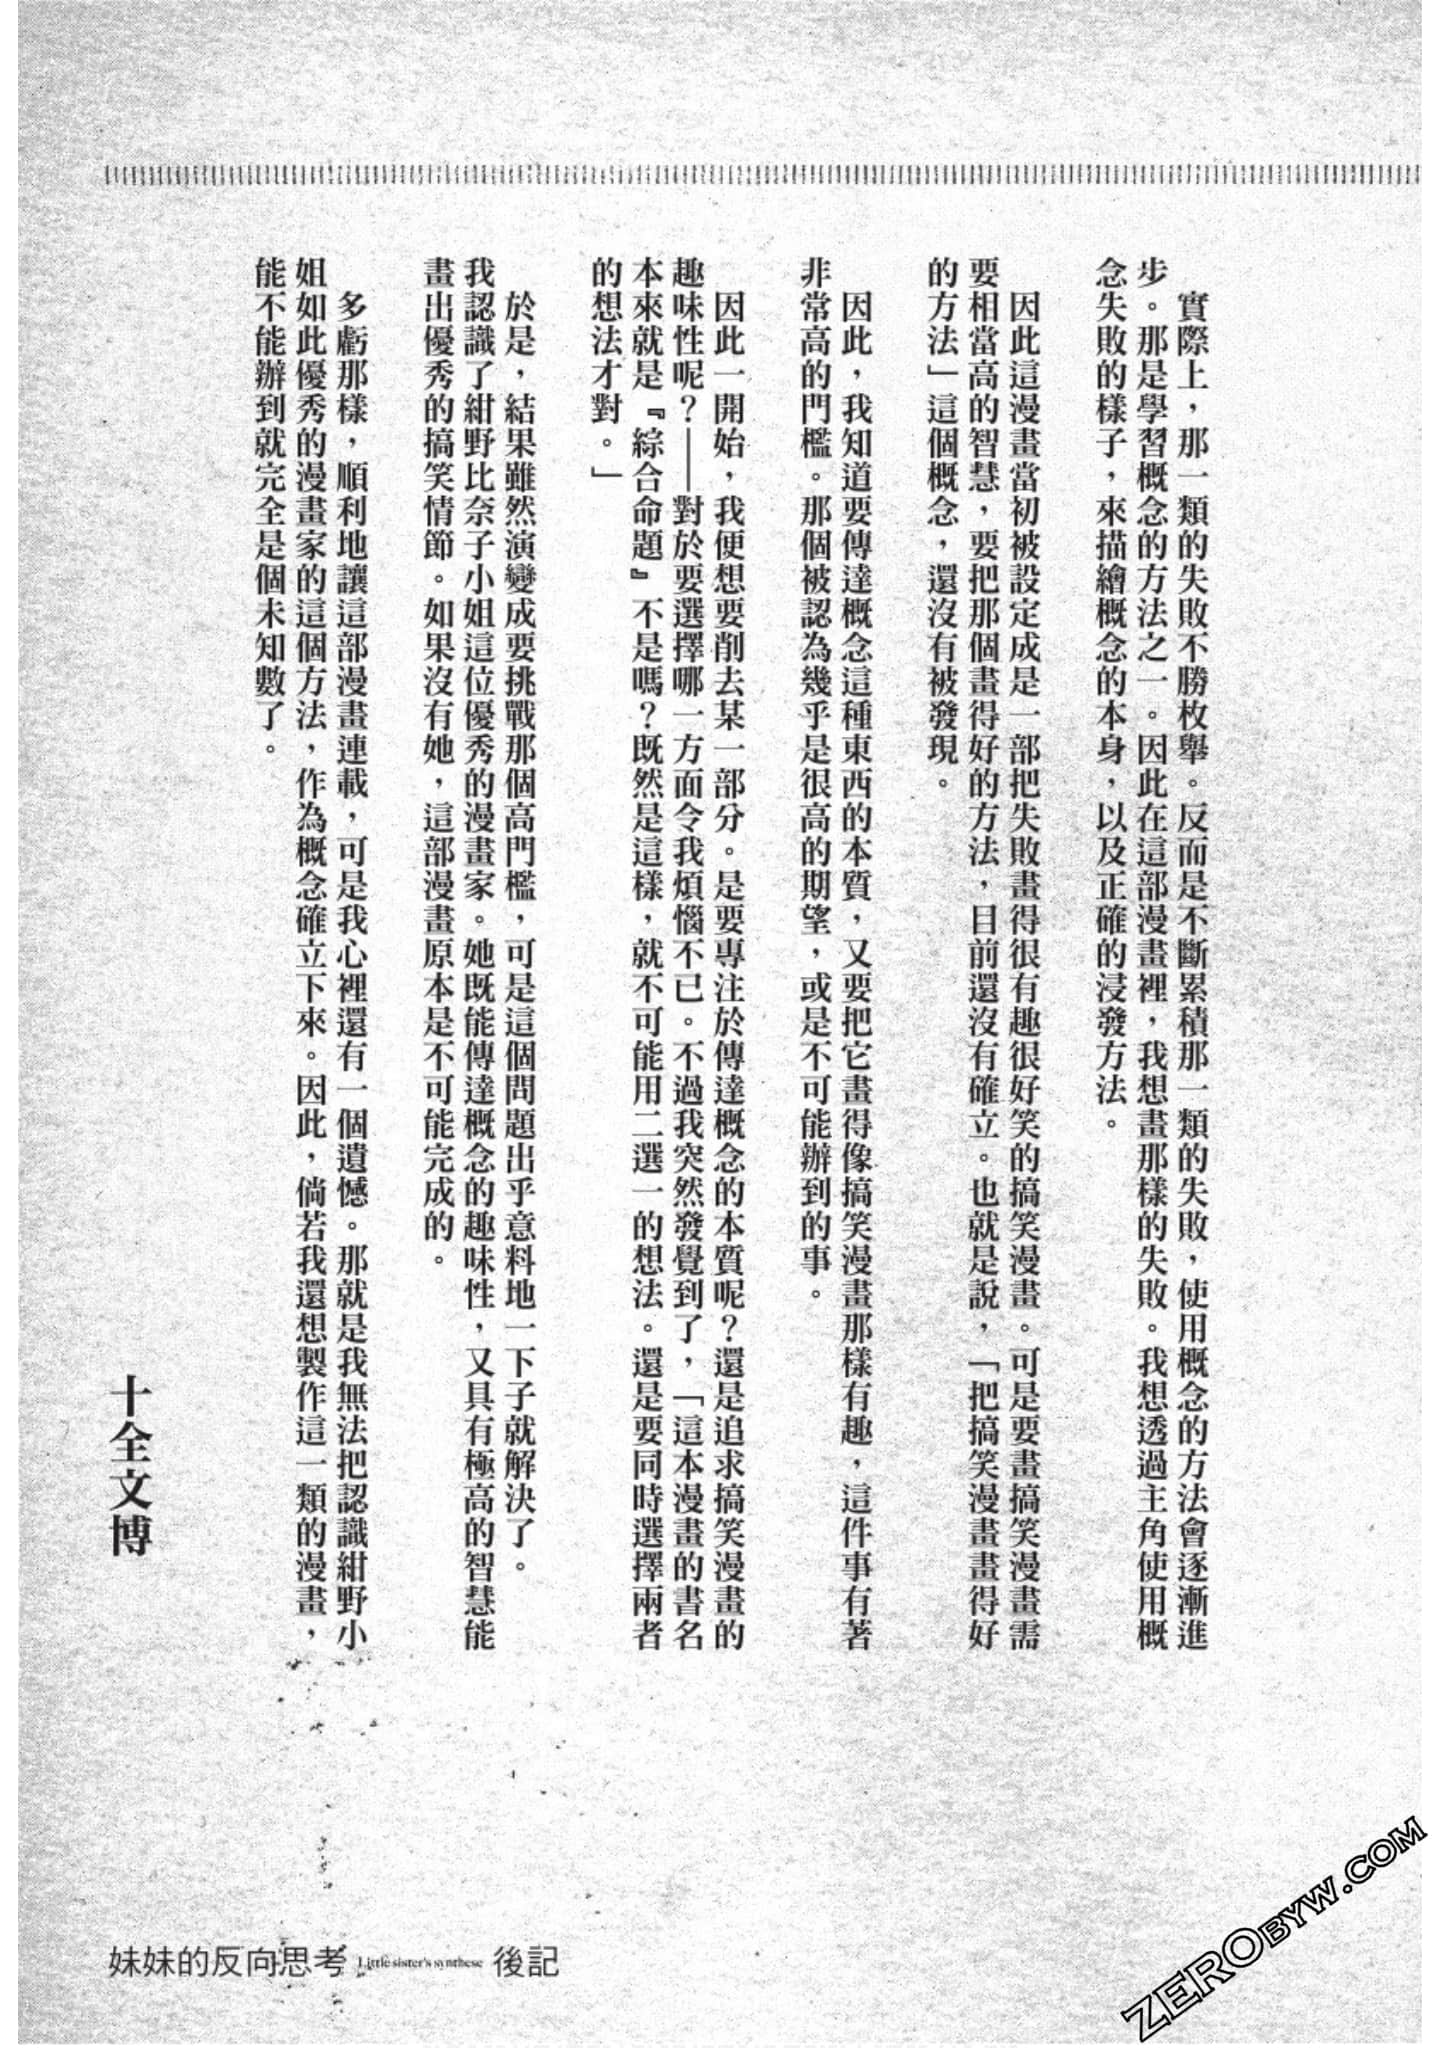 實際上，那一類的失敗不勝枚舉。反而是不斷累積那一類的失敗，使用概念的方法會逐漸進
步。那是學習概念的方法之一。因此在這部漫畫裡，我想畫那樣的失敗。我想透過主角使用概
念失敗的樣子，來描繪概念的本身，以及正確的浸發方法。
因此這漫畫當初被設定成是一部把失敗畫得很有趣很好笑的搞笑漫畫。可是要畫搞笑漫畫需
要相當高的智慧，要把那個畫得好的方法，目前還沒有確立。也就是說，「把搞笑漫畫畫得好
的方法」這個概念，還沒有被發現。
因此，我知道要傳達概念這種東西的本質，又要把它畫得像搞笑漫畫那樣有趣，這件事有著
非常高的門檻。那個被認為幾乎是很高的期望，或是不可能辦到的事。
因此一開始，我便想要削去某一部分。是要專注於傳達概念的本質呢？還是追求搞笑漫畫的
趣味性呢？——對於要選擇哪一方面令我煩惱不已。不過我突然發覺到了，「這本漫畫的書名
本來就是『綜合命題』不是嗎？既然是這樣，就不可能用二選一的想法。還是要同時選擇兩者
的想法才對。」
於是，結果雖然演變成要挑戰那個高門檻，可是這個問題出乎意料地一下子就解決了。
我認識了紺野比奈子小姐這位優秀的漫畫家。她既能傳達概念的趣味性，又具有極高的智慧能
畫出優秀的搞笑情節。如果沒有她，這部漫畫原本是不可能完成的。
多虧那樣，順利地讓這部漫畫連載，可是我心裡還有一個遺憾。那就是我無法把認識紺野小
姐如此優秀的漫畫家的這個方法，作為概念確立下來。因此，倘若我還想製作這一類的漫畫，
能不能辦到就完全是個未知數了。
十全文博
妹妹的反向思考 Little sister's synthese 後記
ZEROBYW.COM